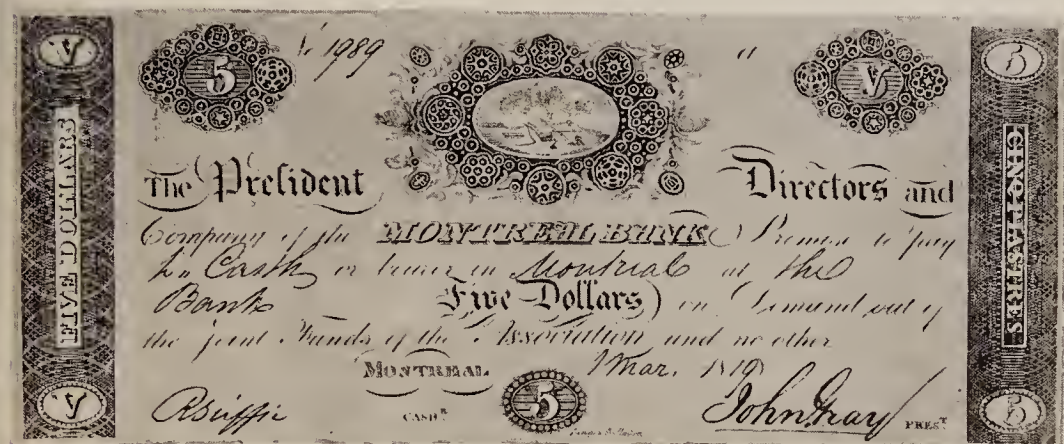 V
5
Nº 1989
a
V
5
FIVE DOLLARS
CINQ PIASTRES
The President Directors and
Company of the MONTREAL BANK Promise to pay
to Cash or bearer in Montreal at the
Bank Five Dollars on Demand out of
the joint Funds of the Association and no other
MONTREAL 1 Mar. 1819
CASHR
5
John Gray PREST
V
5